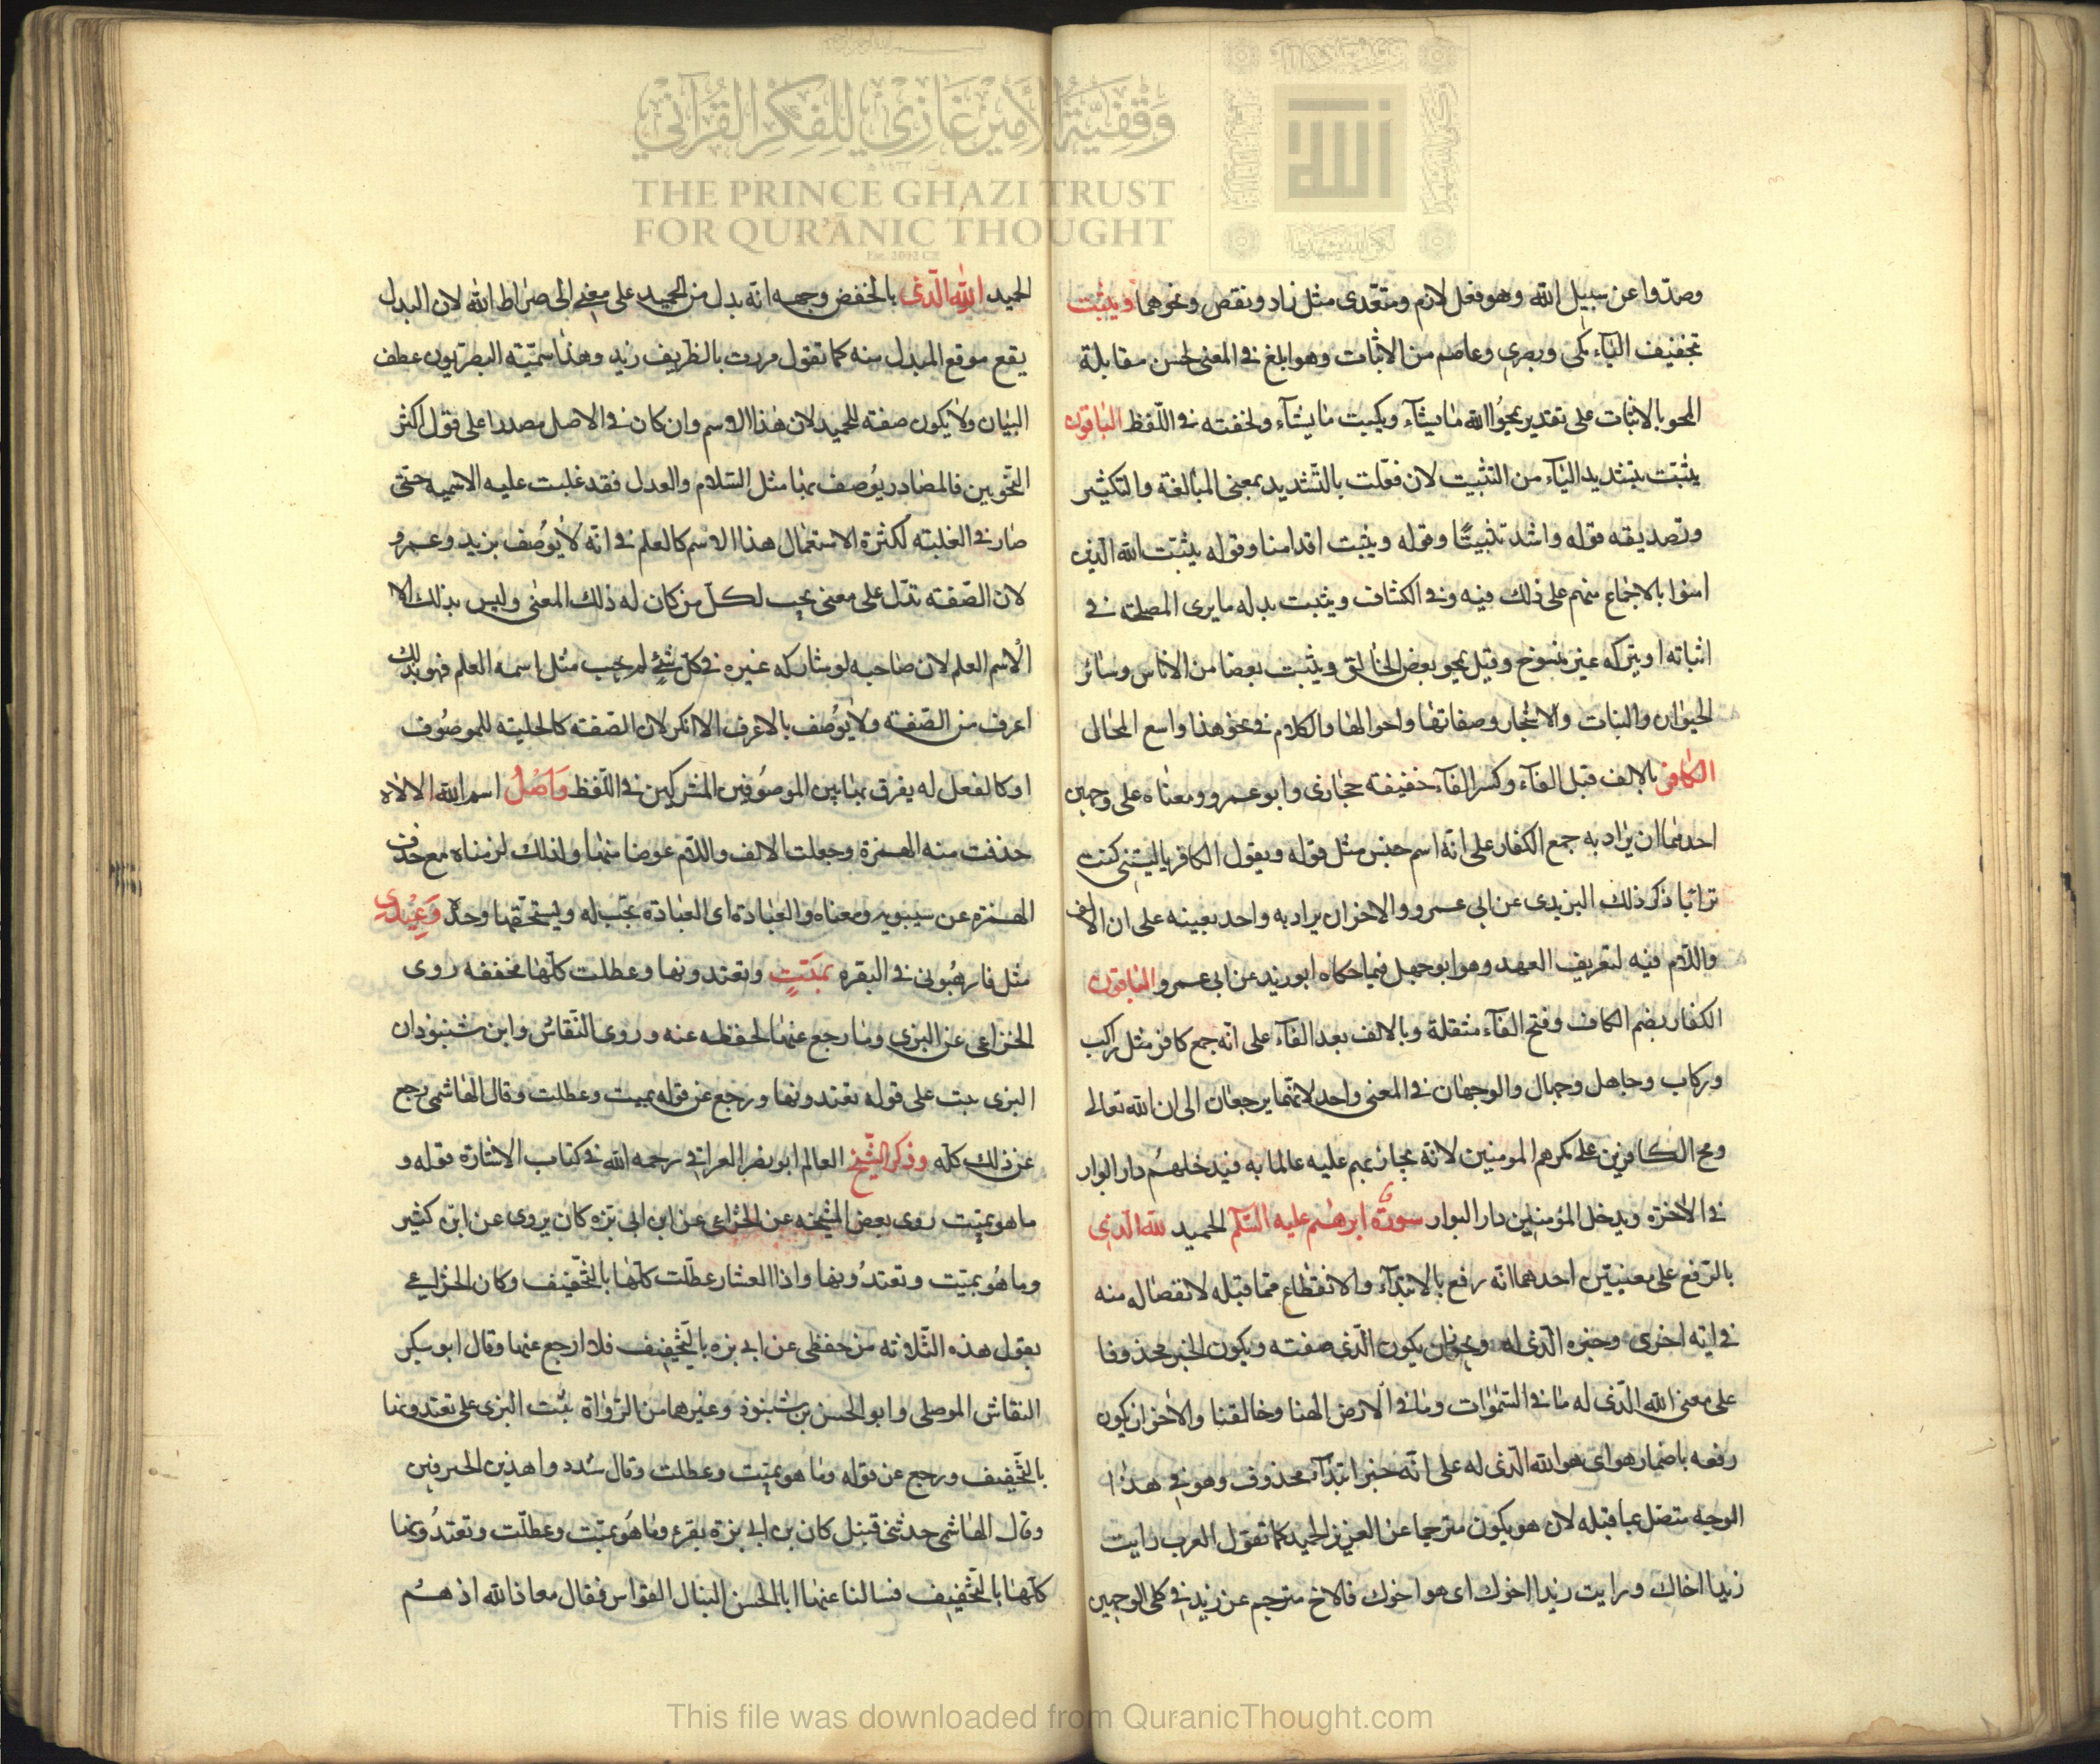 وقفية الأمير غازي للفكر القرآني
THE PRINCE GHAZI TRUST
FOR QUR'ĀNIC THOUGHT
وصدّوا عن سبيل الله وهو فعل لازم ومتعّدى مثل زاد ونقص ونحوهما ويثبت
بتخفيف البآء مكى وبصرى وعاصم من الاثبات وهو ابلغ فى المعنى لحسن مقابلة
المحو بالاثبات على تقدير يمحوا الله ما يشآء ويثبت ما يشآء ولخفته فى اللّفظ الباقون
يثبّت بتشديد البآء من التثبيت لان فعّلت بالتّشديد بمعنى المبالغة والتكثير
وتصديقه قوله واشد تثبيتًا وقوله ويثبت اقدامنا وقوله يثبّت الله الذين
امنوا بالاجماع منهم على ذلك فيه وفى الكشاف ويثبت بدله ما يرى المصلحة فى
اثباته او يتركه غير منسوخ وقيل يمحو بعض الخالق ويثبت بعضا من الاناس وسائر
الحيوان والنبات والاشجار وصفاتها واحوالها والكلام فى نحو هذا واسع المجال
الكافر بالالف قبل الفآء وكسر الفآء خفيفة حجازى وابو عمرو ومعناه على وجهين
احدهما ان يراد به جمع الكفار على انّه اسم جنس مثل قوله ويقول الكافر يا ليتنى كنت
ترابا ذكر ذلك اليزيدى عن ابى عمرو والاخر ان يراد به واحد بعينه على ان الالف
واللّام فيه لتعريف العهد وهو ابو جهل فيما حكاه ابو زيد عن ابى عمرو الباقون
الكفار بضم الكاف وفتح الفآء مثقلة وبالالف بعد الفآء على انّه جمع كافر مثل راكب
وركاب وجاهل وجهال والوجهان فى المعنى واحد لانّهما يرجعان الى ان الله تعالى
ومح الكافرين على مكرهم المومنين لانه مجاز بهم عليه عالما به فيدخلهم دار البوار
فى الآخرة ويدخل المؤمنين دار البوار سورة ابرهيم عليه السّلم الحميد لله الّذى
بالرّفع على معنيين احدهما انّه رفع بالابتدآء والانقطاع ممّا قبله لانفصاله منه
فى اية اخرى وخبره الّذى له ويجوز ان يكون الّذى صفته ويكون الخبر محذوفا
على معنى الله الّذى له ما فى السّموات وما فى الارض الهنا وخالقنا والآخر ان يكون
رفعه باضمار هو اى هو الله الّذى له على انّه خبر ابتدآء محذوف وهو فى هذا
الوجه متصل بما قبله لان هو يكون مترجما عن العزيز الحميد كما تقول العرب رايت
زيدا اخاك ورايت زيدا اخوك اى هو اخوك فالاخ مترجم عن زيد فى كلى الوجهين
الحميد الله الّذى بالخفض وجهه انّه بدل من الحميد على معنى الى صراط الله لان البدل
يقع موقع المبدل منه كما تقول مررت بالظريف زيد وهذا سمّيته البصريّون عطف
البيان ولا يكون صفته للحميد لان هذا الاسم وان كان فى الاصل مصدرا على قول اكثر
النّحويين فالمصادر يوصف بها مثل السّلام والعدل فقد غلبت عليه الاسمية حتى
صار فى الغلبته لكثرة الاستعمال هذا الاسم كالعلم فى انّه لا يوصف بزيد وعمرو
لان الصّفته تدّل على معنى يجب لكلّ من كان له ذلك المعنى وليس بذلك الا
الاسم العلم لان صاحبه لو شاركه غيره فى كلّ شئ لم يجب مثل اسمه العلم فهو بذلك
اعرف من الصّفته ولا يوصف بالاعرف الا انكر لان الصّفته كالحليته للموصوف
او كالفعل له يفرق بها بين الموصوفين المشركين فى اللّفظ وَاصْلُ اسم الله الالاه
حذفت منه الهمزة وجعلت الالف واللّام عوضا منها ولذلك لزمناه مع حذف
الهمزة عن سيبويه ومعناه والعبادة اى العبادة تجب له ويستحّقها وحده وَعِيْدِى
مثل فارهبونى فى البقره بمَيّتٍ وتعتدونها وعطلت كلّها مخففه روى
الخزاعى عن البزى وما رجع عنها لحفظه عنه وروى النّقاش وابن شنبوذان
البزى ثبت على قوله تعتدونها ورجع عن قوله بميت وعطلت وقال الهاشمى رجع
عن ذلك كلّه وذكر الشّيخ العالم ابو نصر العراقى رحمه الله فى كتاب الاشارة قوله و
ما هو بميّت روى بعض المشيخه عن الخزاعى عن ابن ابى بزه كان يروى عن ابن كثير
وما هُو بميّت وتعتدُونها واذا العشار عطّلت كلّها بالتّخفيف وكان الخزاعى
يقول هذه الثّلاثه من حفظى عن ابى بزه بالتّخفيف فلا ارجع عنها وقال ابو بكر
النقاش الموصلى وابو الحسن بن شنبوذ وغيرها من الرّواة ثبت البزى على تعتدونها
بالتّخفيف ورجع عن قوله وما هو بميّت وعطلت وقال شدد واهذين الحرفين
وقال الهاشمى حدثنى قنبل كان بن ابى بزة يقرئ وما هُو بميّت وعطلّت وتعتدُونها
كلّها بالتّخفيف فسالنا عنها ابا الحسن النبال القواس فقال معاذ الله اذ هم
This file was downloaded from QuranicThought.com